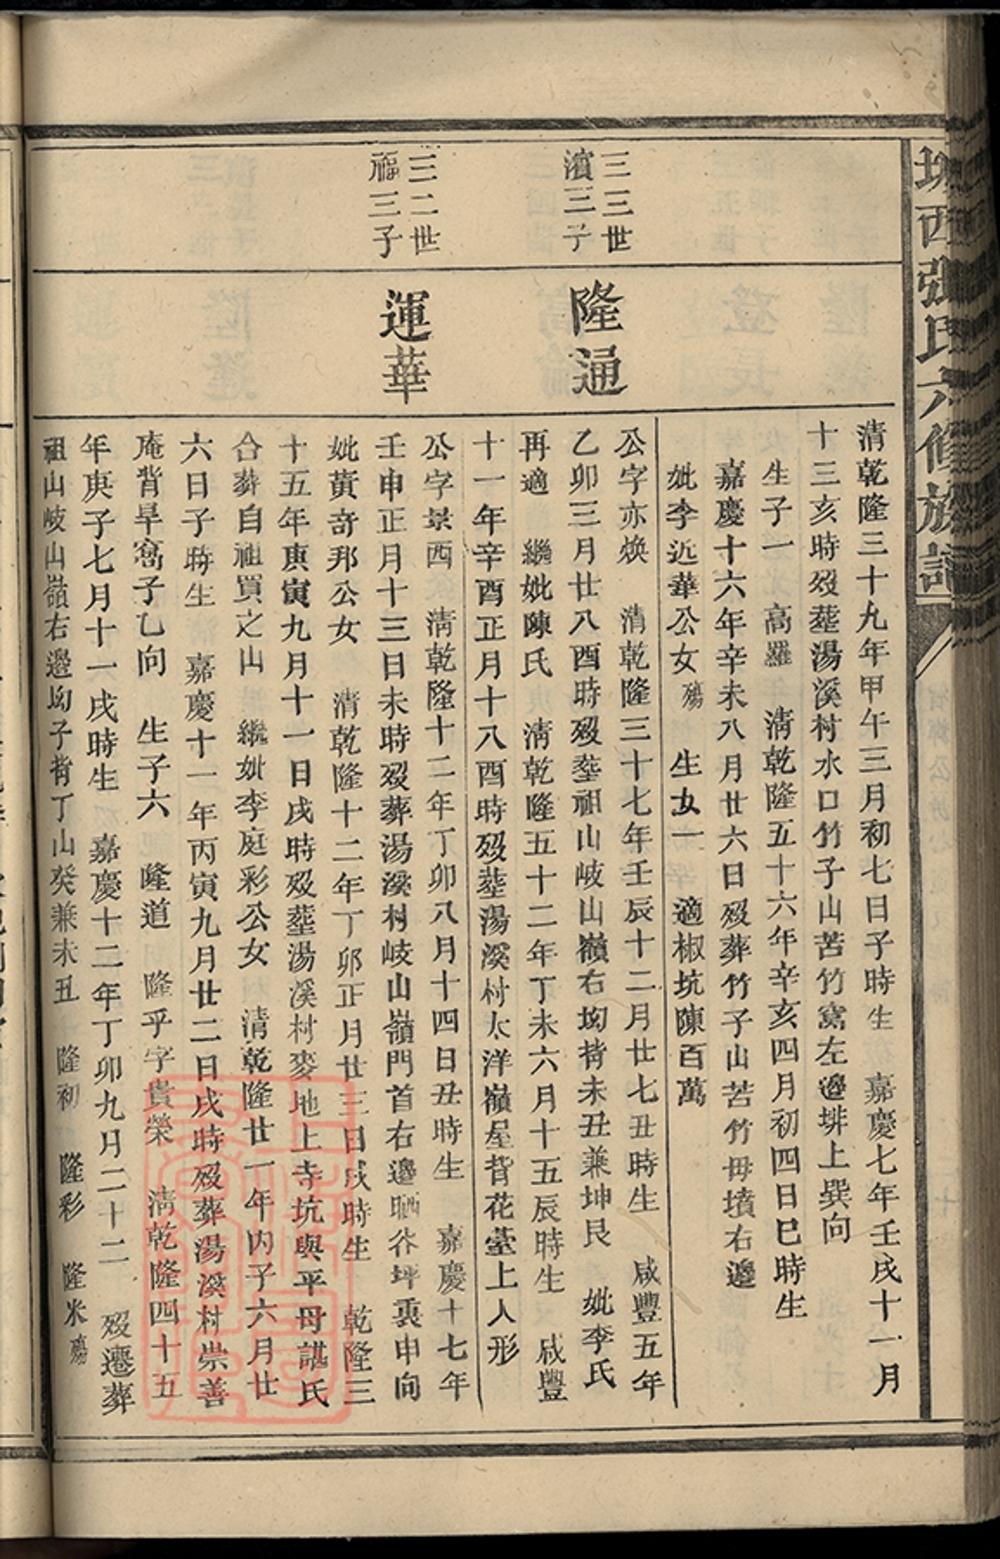 西張氏六修族譜
清乾隆三十九年甲午三月初七日子時生 嘉慶七年壬戌十一月
十三亥時歿塟湯溪村水口竹子山苦竹窩左邊排上巽向
生子一 高羅 清乾隆五十六年辛亥四月初四日巳時生
嘉慶十六年辛未八月廿六日歿葬竹子山苦竹毋墳右邊
妣李近華公女殤 生女一 適椒坑陳百萬
三三世
濱三子
隆通
公字亦煥 清乾隆三十七年壬辰十二月廿七丑時生 咸豐五年
乙卯三月廿八酉時歿塟祖山岐山嶺右坳背未丑兼坤艮 妣李氏
再適 繼妣陳氏 清乾隆五十二年丁未六月十五辰時生 咸豐
十一年辛酉正月十八酉時歿塟湯溪村太洋嶺屋背花臺上人形
三二世
福三子
運華
公字景西 清乾隆十二年丁卯八月十四日丑時生 嘉慶十七年
壬申正月十三日未時歿葬湯溪村岐山嶺門首右邊晒谷坪裏申向
妣黃奇邦公女 清乾隆十二年丁卯正月廿三日戌時生 乾隆三
十五年庚寅九月十一日戌時歿塟湯溪村麥地上寺坑與平母諶氏
合葬自祖買之山 繼妣李庭彩公女 清乾隆廿一年丙子六月廿
六日子時生 嘉慶十一年丙寅九月廿二日戌時歿葬湯溪村崇善
庵背旱窩子乙向 生子六 隆道 隆乎字貴榮 清乾隆四十五
年庚子七月十一戌時生 嘉慶十二年丁卯九月二十二 歿遷葬
祖山岐山嶺右邊坳子背丁山癸兼未丑 隆初 隆彩 隆米殤